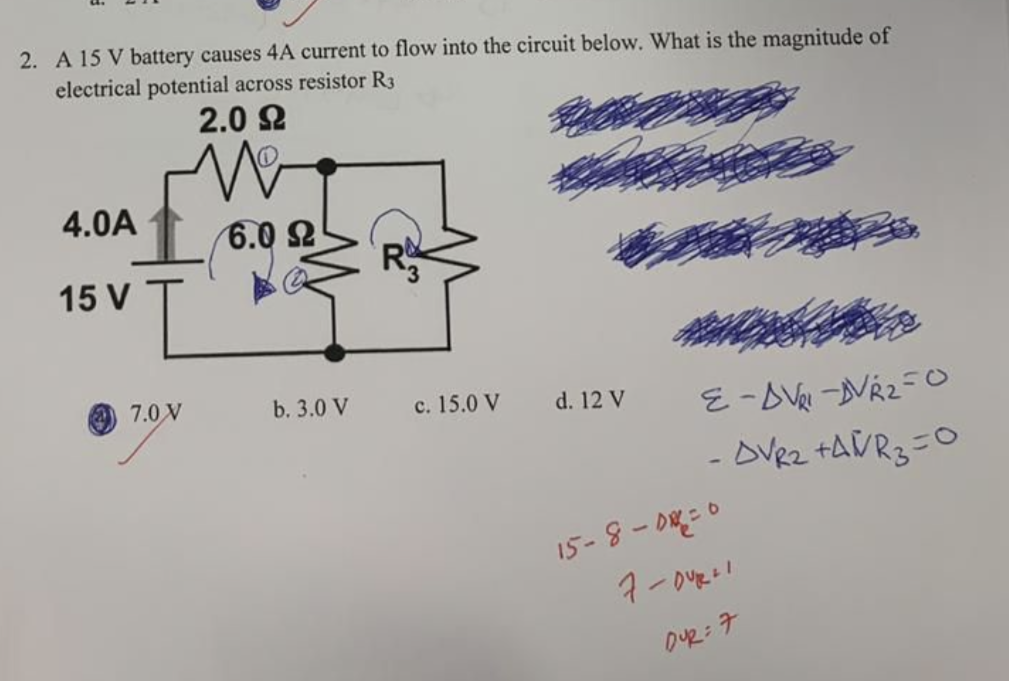 2. A 15 V battery causes 4A current to flow into the circuit below. What is the magnitude of
electrical potential across resistor R3
2.0 Ω
①
4.0A
6.0 Ω
②
R3
15 V
7.0 V b. 3.0 V c. 15.0 V d. 12 V
Ɛ - ΔVR1 - ΔVR2 = 0
- ΔVR2 + ΔVR3 = 0
15 - 8 - = 0
7 - DVR = 1
DVR = 7